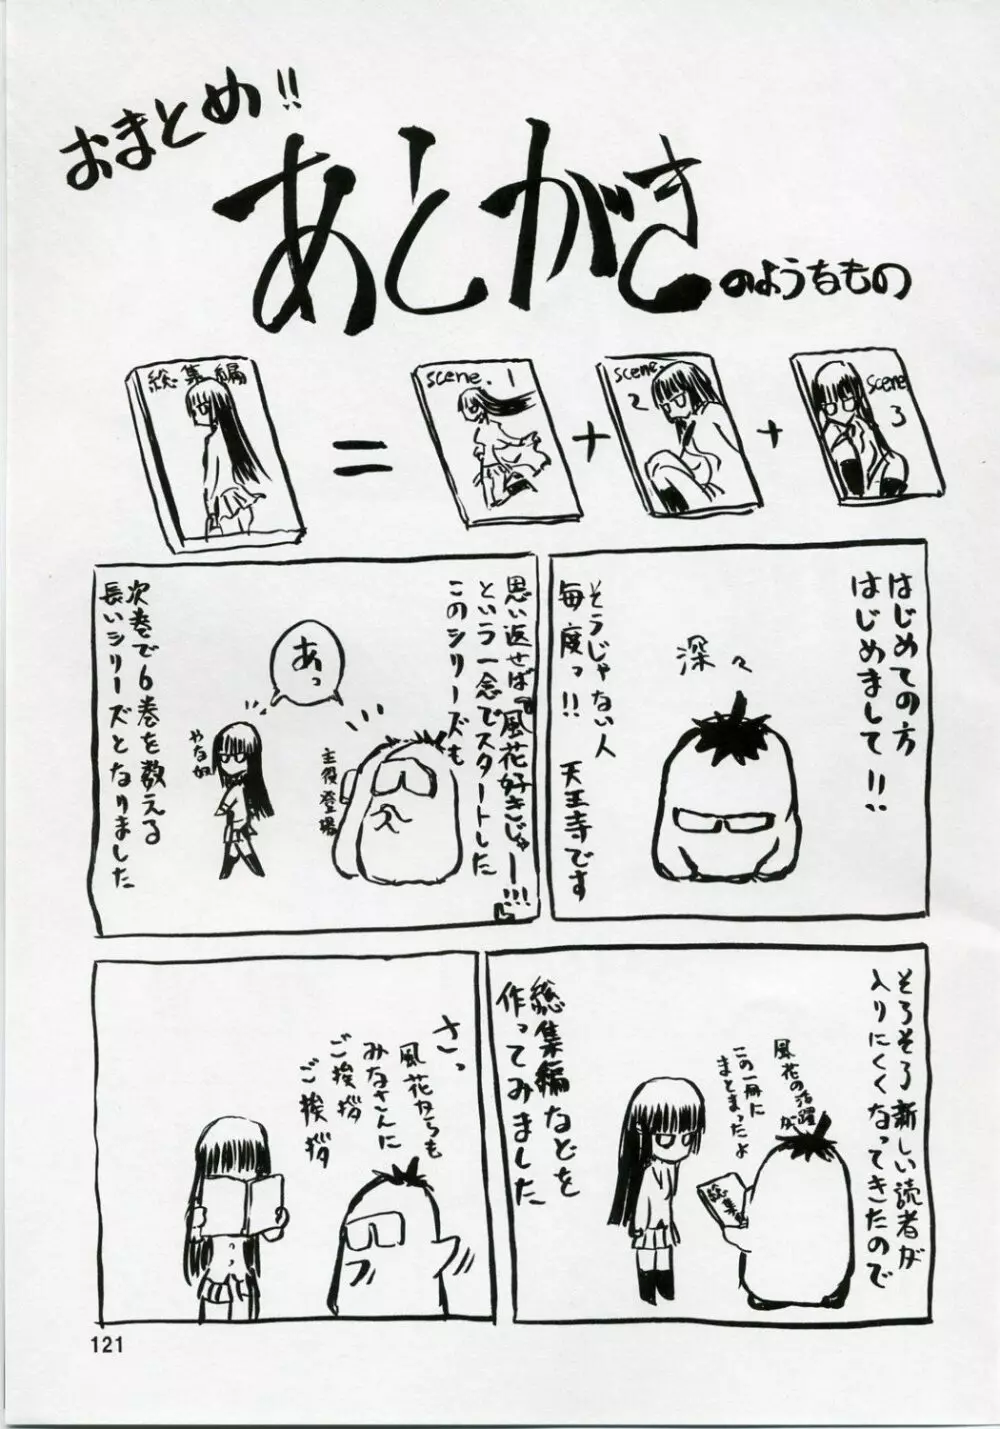 おまとめ!!
あとがき
のようなもの
総集編
=
scene. 1
+
scene.
2
+
scene
3
はじめての方
はじめまして!!
深々
そうじゃない人
毎度っ!!
天王寺です
思い返せば『風花好きじゃー!!!』
という一念でスタートした
このシリーズも
あっ
主役登場
やな奴
次巻で6巻を数える
長いシリーズとなりました
そろそろ新しい読者が
入りにくくなってきたので
風花の活躍が
この一冊に
まとまったよ
総集編
総集編などを
作ってみました
さっ
風花からも
みなさんに
ご挨拶
ご挨拶
121